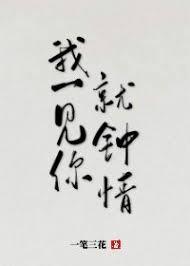 我一见你
就钟情
一笔三花
著